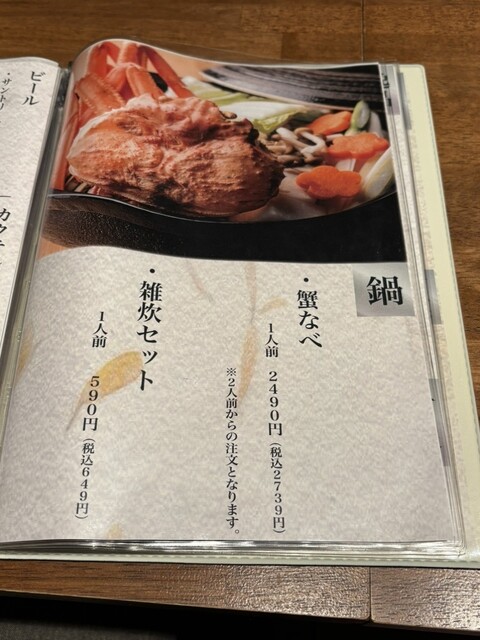 鍋
・蟹なべ
1人前 2490円（税込2739円）
※2人前からの注文となります。
・雑炊セット
1人前 590円（税込649円）
ビール
・サントリ